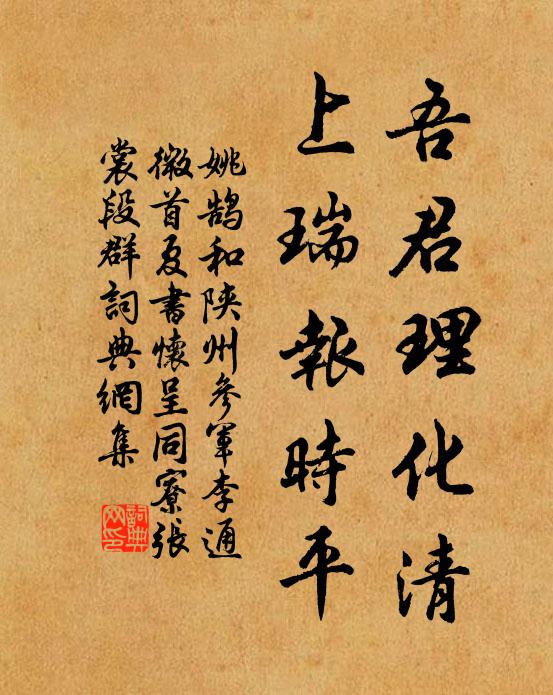 吾君理化清
上瑞報時平
姚鹄和陝州參軍李通
微首夏書懷呈同寮張
裳段群詞典網集
詞典
网印